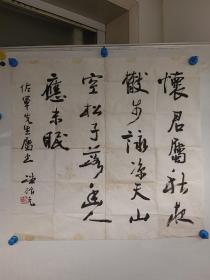 懷君屬秋夜
散步詠涼天山
空松子落幽人
應未眠
佐軍先生屬